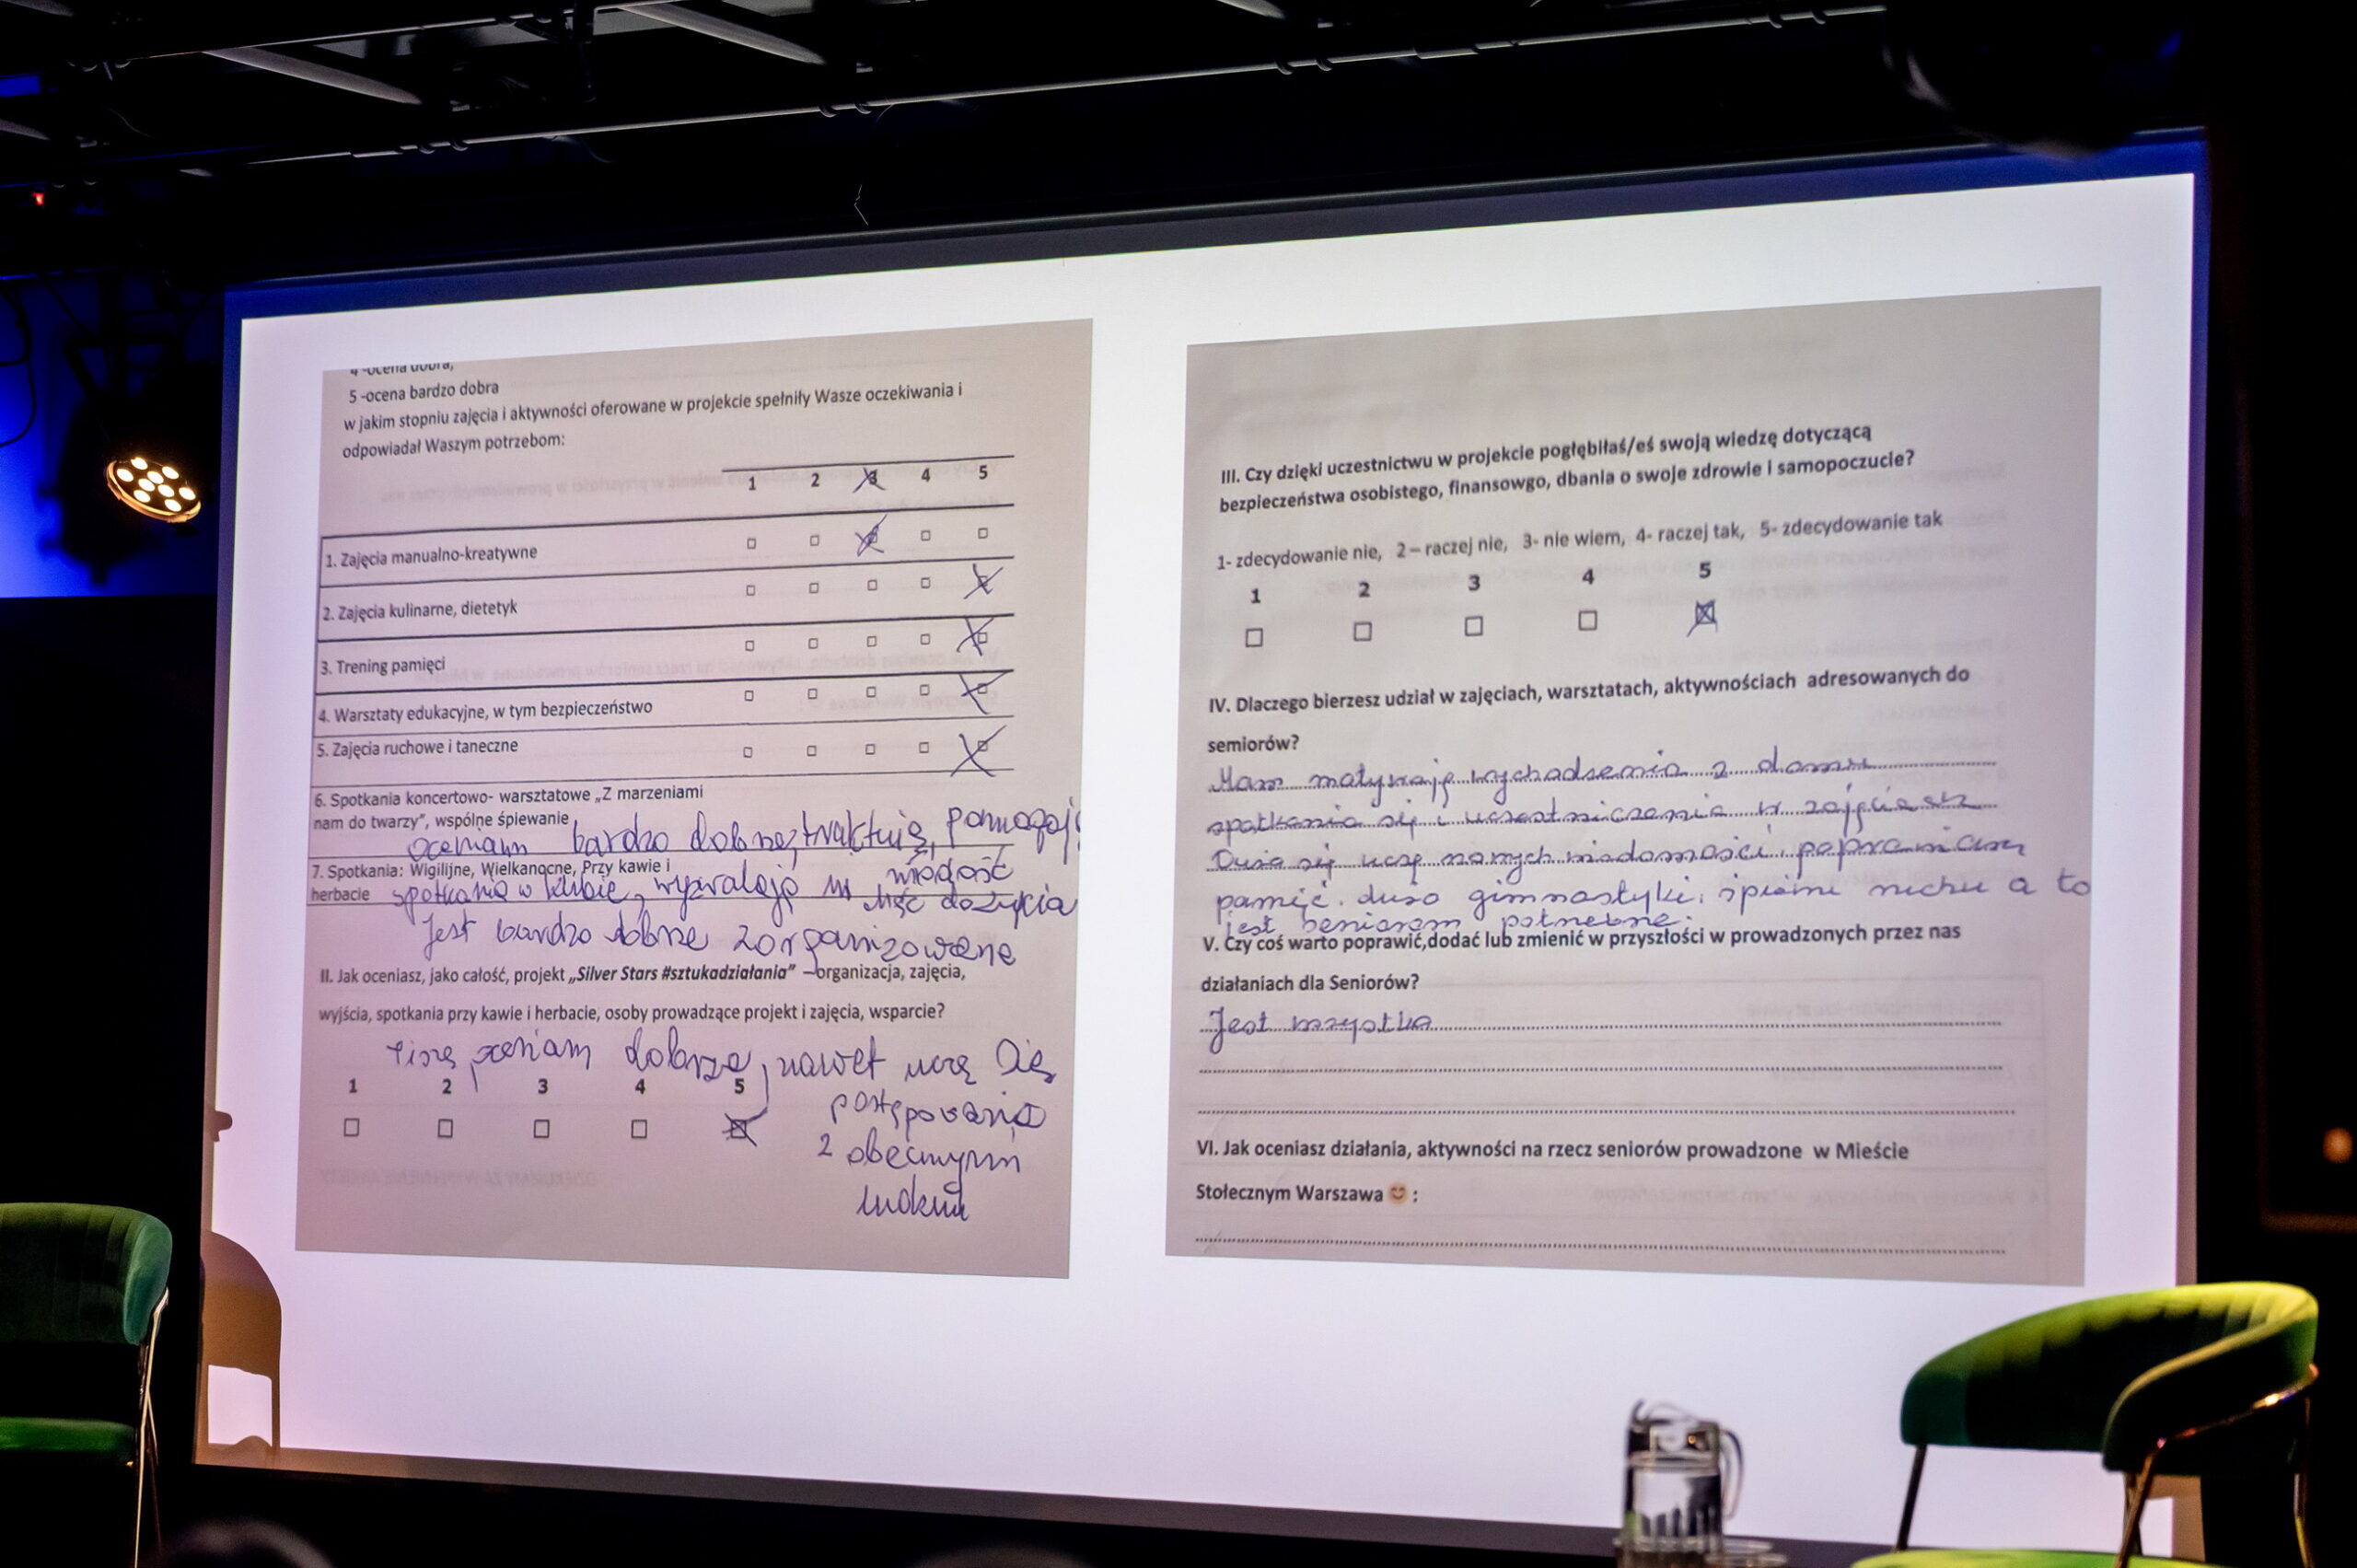 4 -ocena dobra,
5 -ocena bardzo dobra
w jakim stopniu zajęcia i aktywności oferowane w projekcie spełniły Wasze oczekiwania i
odpowiadał Waszym potrzebom:
1 2 3 4 5
1. Zajęcia manualno-kreatywne
2. Zajęcia kulinarne, dietetyk
3. Trening pamięci
4. Warsztaty edukacyjne, w tym bezpieczeństwo
5. Zajęcia ruchowe i taneczne
6. Spotkania koncertowo- warsztatowe „Z marzeniami
nam do twarzy", wspólne śpiewanie
oceniam bardzo dobrze, traktują, pomagają
7. Spotkania: Wigilijne, Wielkanocne, Przy kawie i
herbacie spotkania w klubie, wyzwalają
chęć do życia
Jest bardzo dobrze zorganizowane
II. Jak oceniasz, jako całość, projekt „Silver Stars #sztukadziałania" –organizacja, zajęcia,
wyjścia, spotkania przy kawie i herbacie, osoby prowadzące projekt i zajęcia, wsparcie?
oceniam dobrze, nawet uczą się
1 2 3 4 5
postępowania
z obecnymi
ludźmi
III. Czy dzięki uczestnictwu w projekcie pogłębiłaś/eś swoją wiedzę dotyczącą
bezpieczeństwa osobistego, finansowgo, dbania o swoje zdrowie i samopoczucie?
1- zdecydowanie nie, 2 – raczej nie, 3- nie wiem, 4- raczej tak, 5- zdecydowanie tak
1 2 3 4 5
IV. Dlaczego bierzesz udział w zajęciach, warsztatach, aktywnościach adresowanych do
semiorów?
Mam motywaję wychodzenia z domu
spotkania się i uczestniczenia w zajęciach
Dużo się uczę nowych wiadomości, poprawiam
pamięć. dużo gimnastyki, śpiewu ruchu a to
jest seniorom potrzebne.
V. Czy coś warto poprawić,dodać lub zmienić w przyszłości w prowadzonych przez nas
działaniach dla Seniorów?
Jest wszystko
VI. Jak oceniasz działania, aktywności na rzecz seniorów prowadzone w Mieście
Stołecznym Warszawa 😊 :